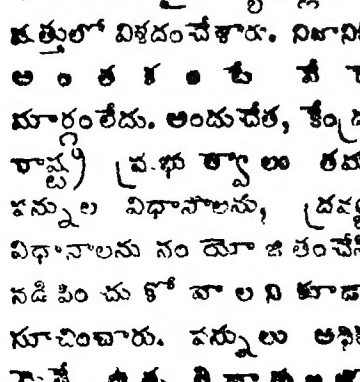 త్తులో విశదంచేశారు. నిజాని
అ ం త క ం టే వే
మార్గంలేదు. అందుచేత, కేంద్ర
రాష్ట్ర ప్రభుత్వాలు తమ
పన్నుల విధానాలను, ద్రవ్య
విధానాలను సంయోజితంచేసి
నడిపించుకోవాలని కూడా
సూచించారు. పన్నులు అధి